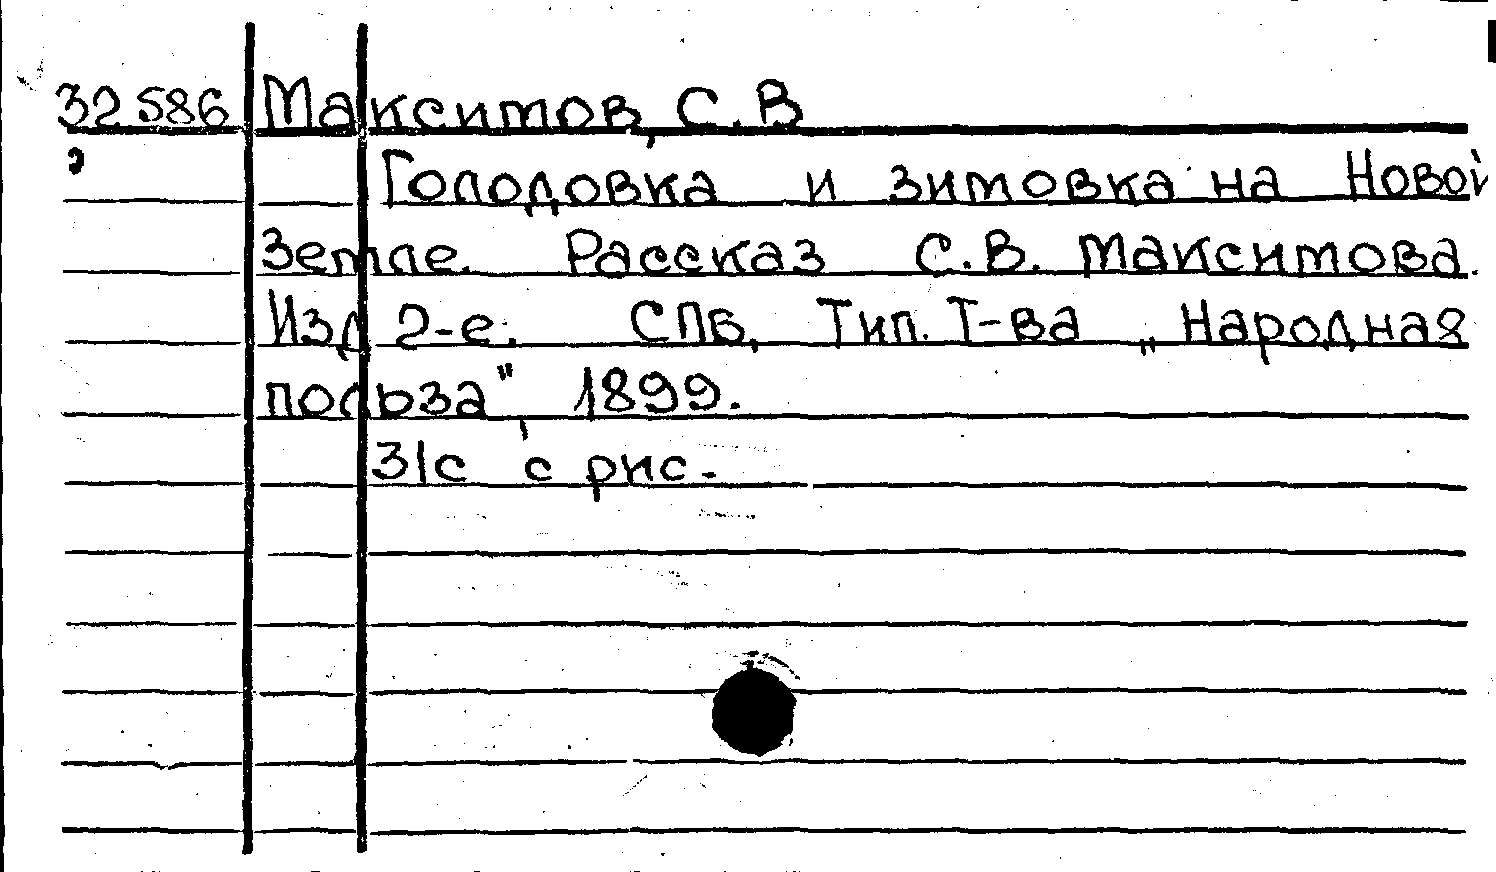 32586 Максимов, С.В
Голодовка и зимовка на Новой
Земле. Рассказ С.В. Максимова.
Изд 2-е. СПб, Тип. Т-ва „Народная
польза", 1899.
31с с рис.